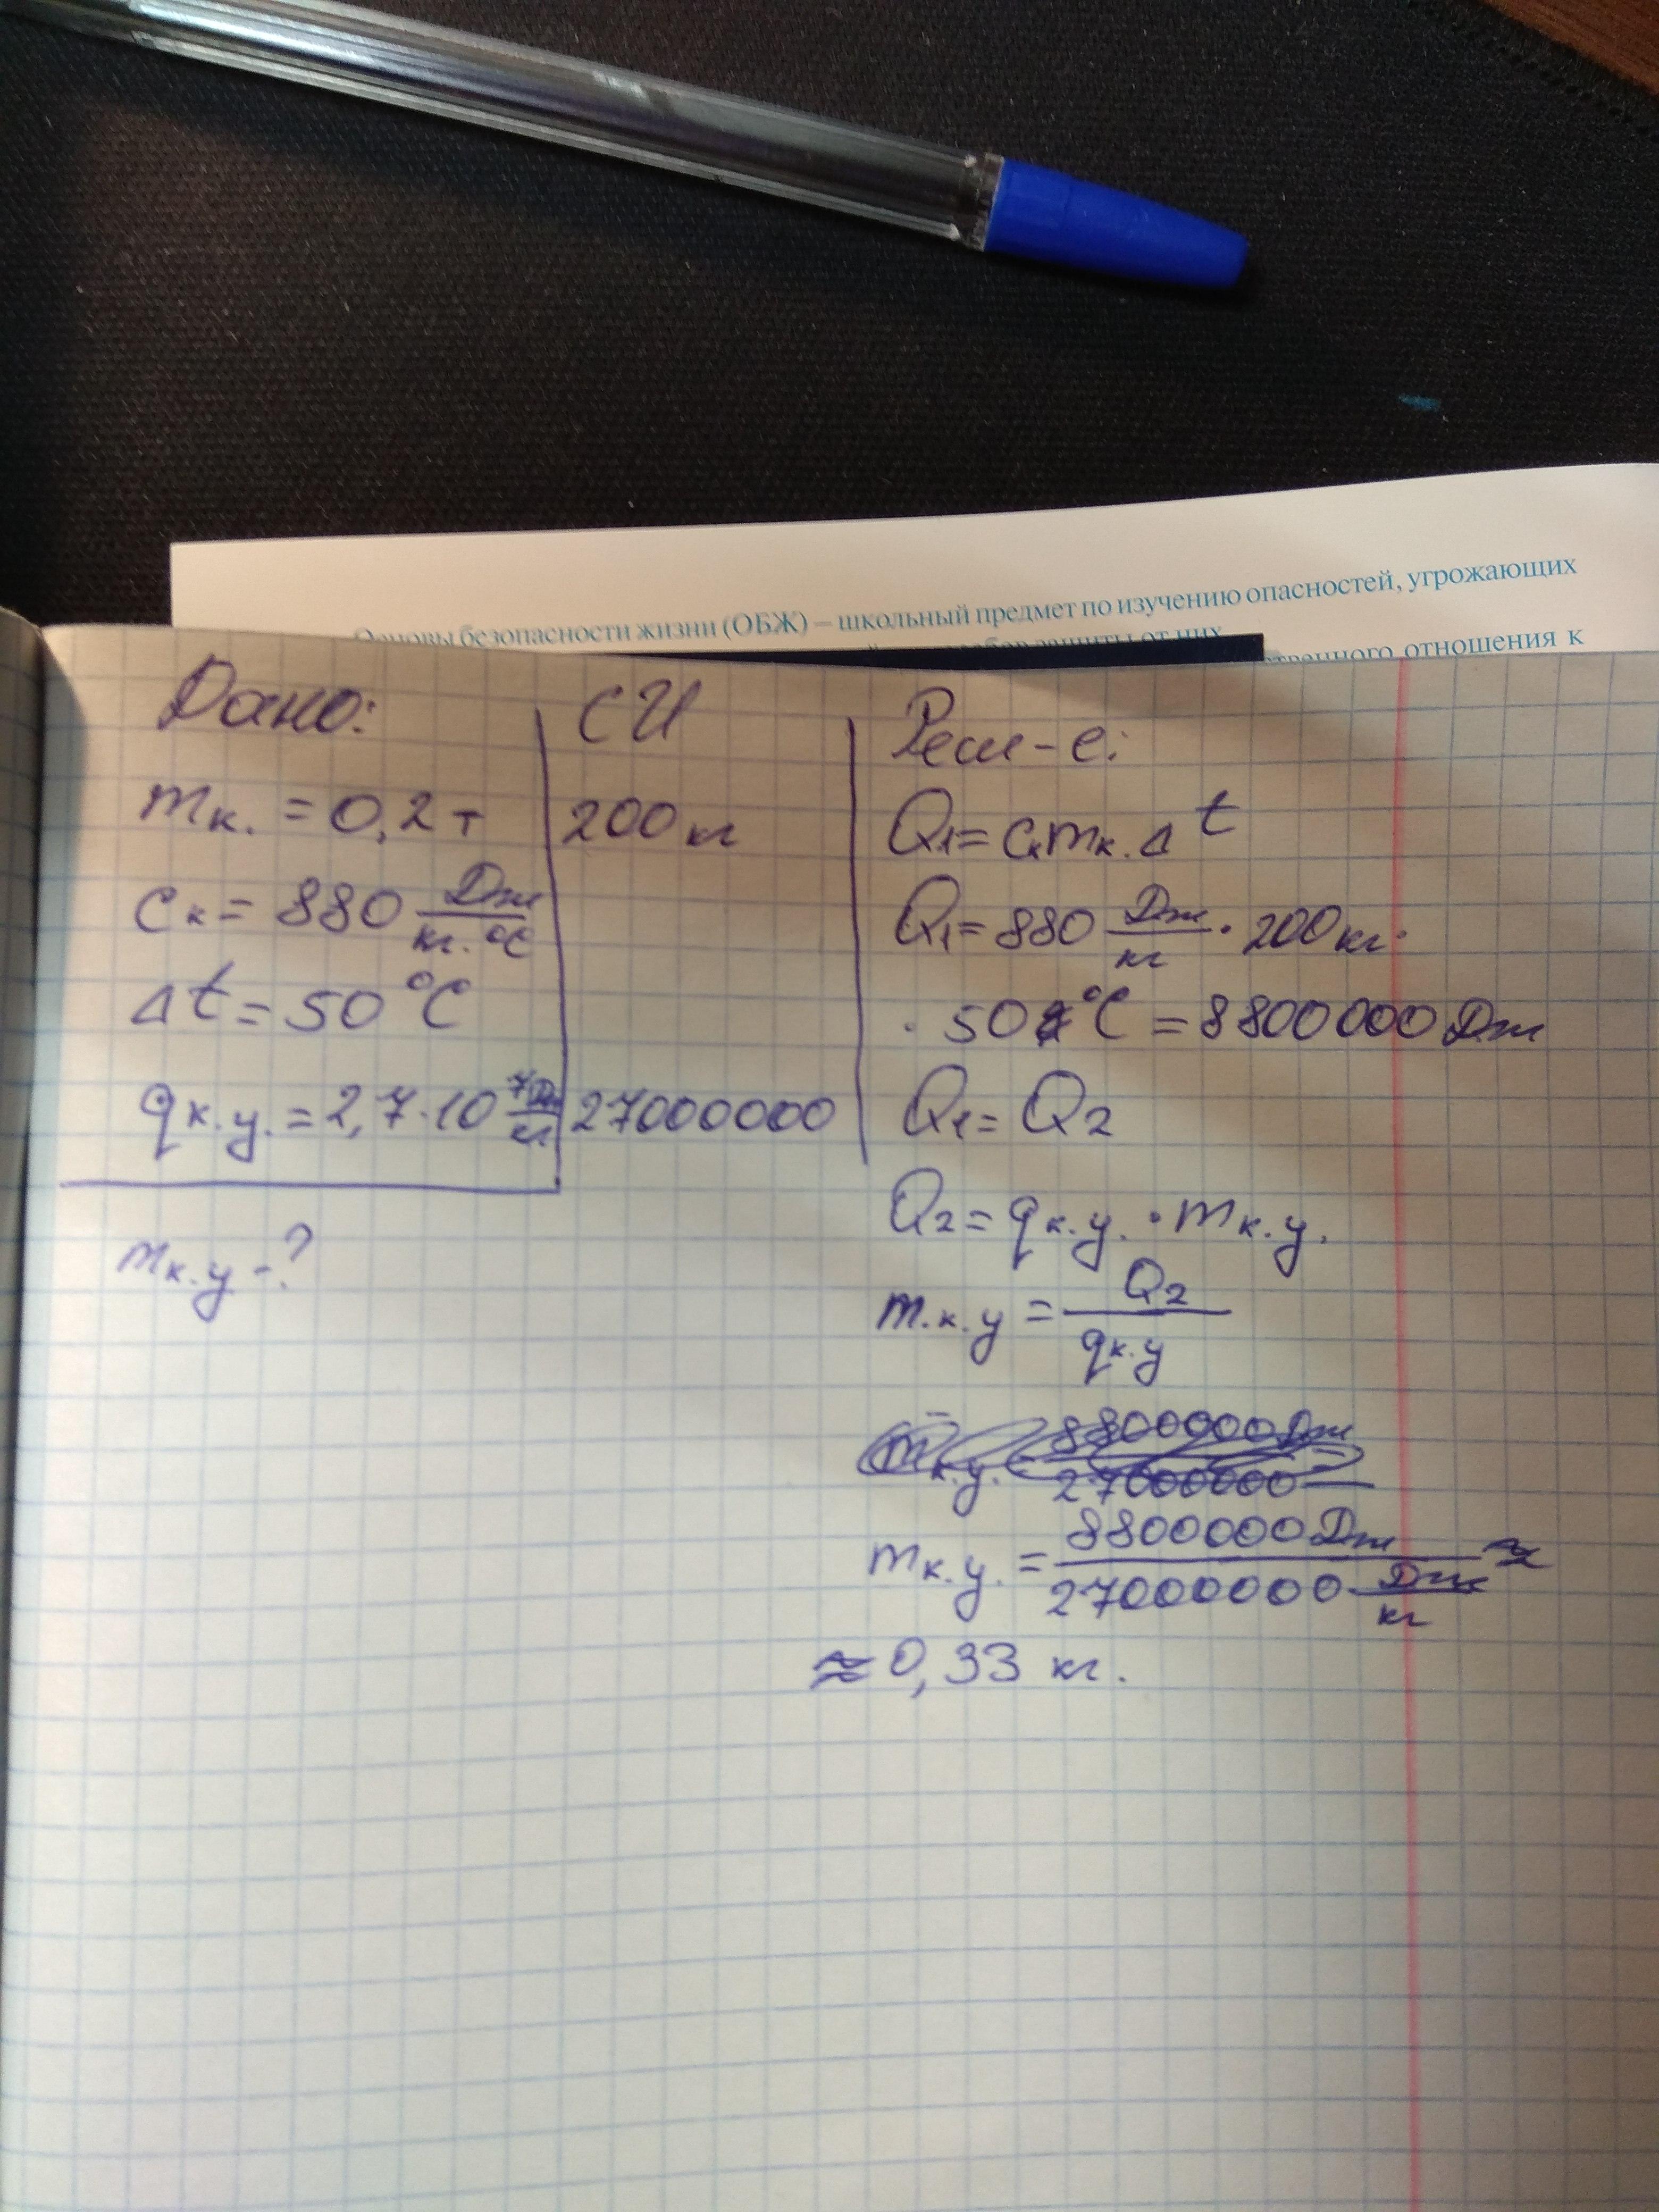 Основы безопасности жизни (ОБЖ) – школьный предмет по изучению опасностей, угрожающих
защиты от них
отношения к
Дано:
mк. = 0,2 т
cк = 880 Дж/кг·°C
Δt = 50 °C
qк.у. = 2,7·10⁷ Дж/кг
mк.у - ?
СИ
200 кг
27000000
Реш-е:
Q1 = cкmк.Δt
Q1 = 880 Дж/кг · 200 кг ·
· 50 °C = 8800000 Дж
Q1 = Q2
Q2 = qк.у. · mк.у.
m.к.у = Q2/qк.у
mк.у. = 8800000 Дж/27000000
mк.у. = 8800000 Дж/27000000 Дж/кг ≈
≈ 0,33 кг.